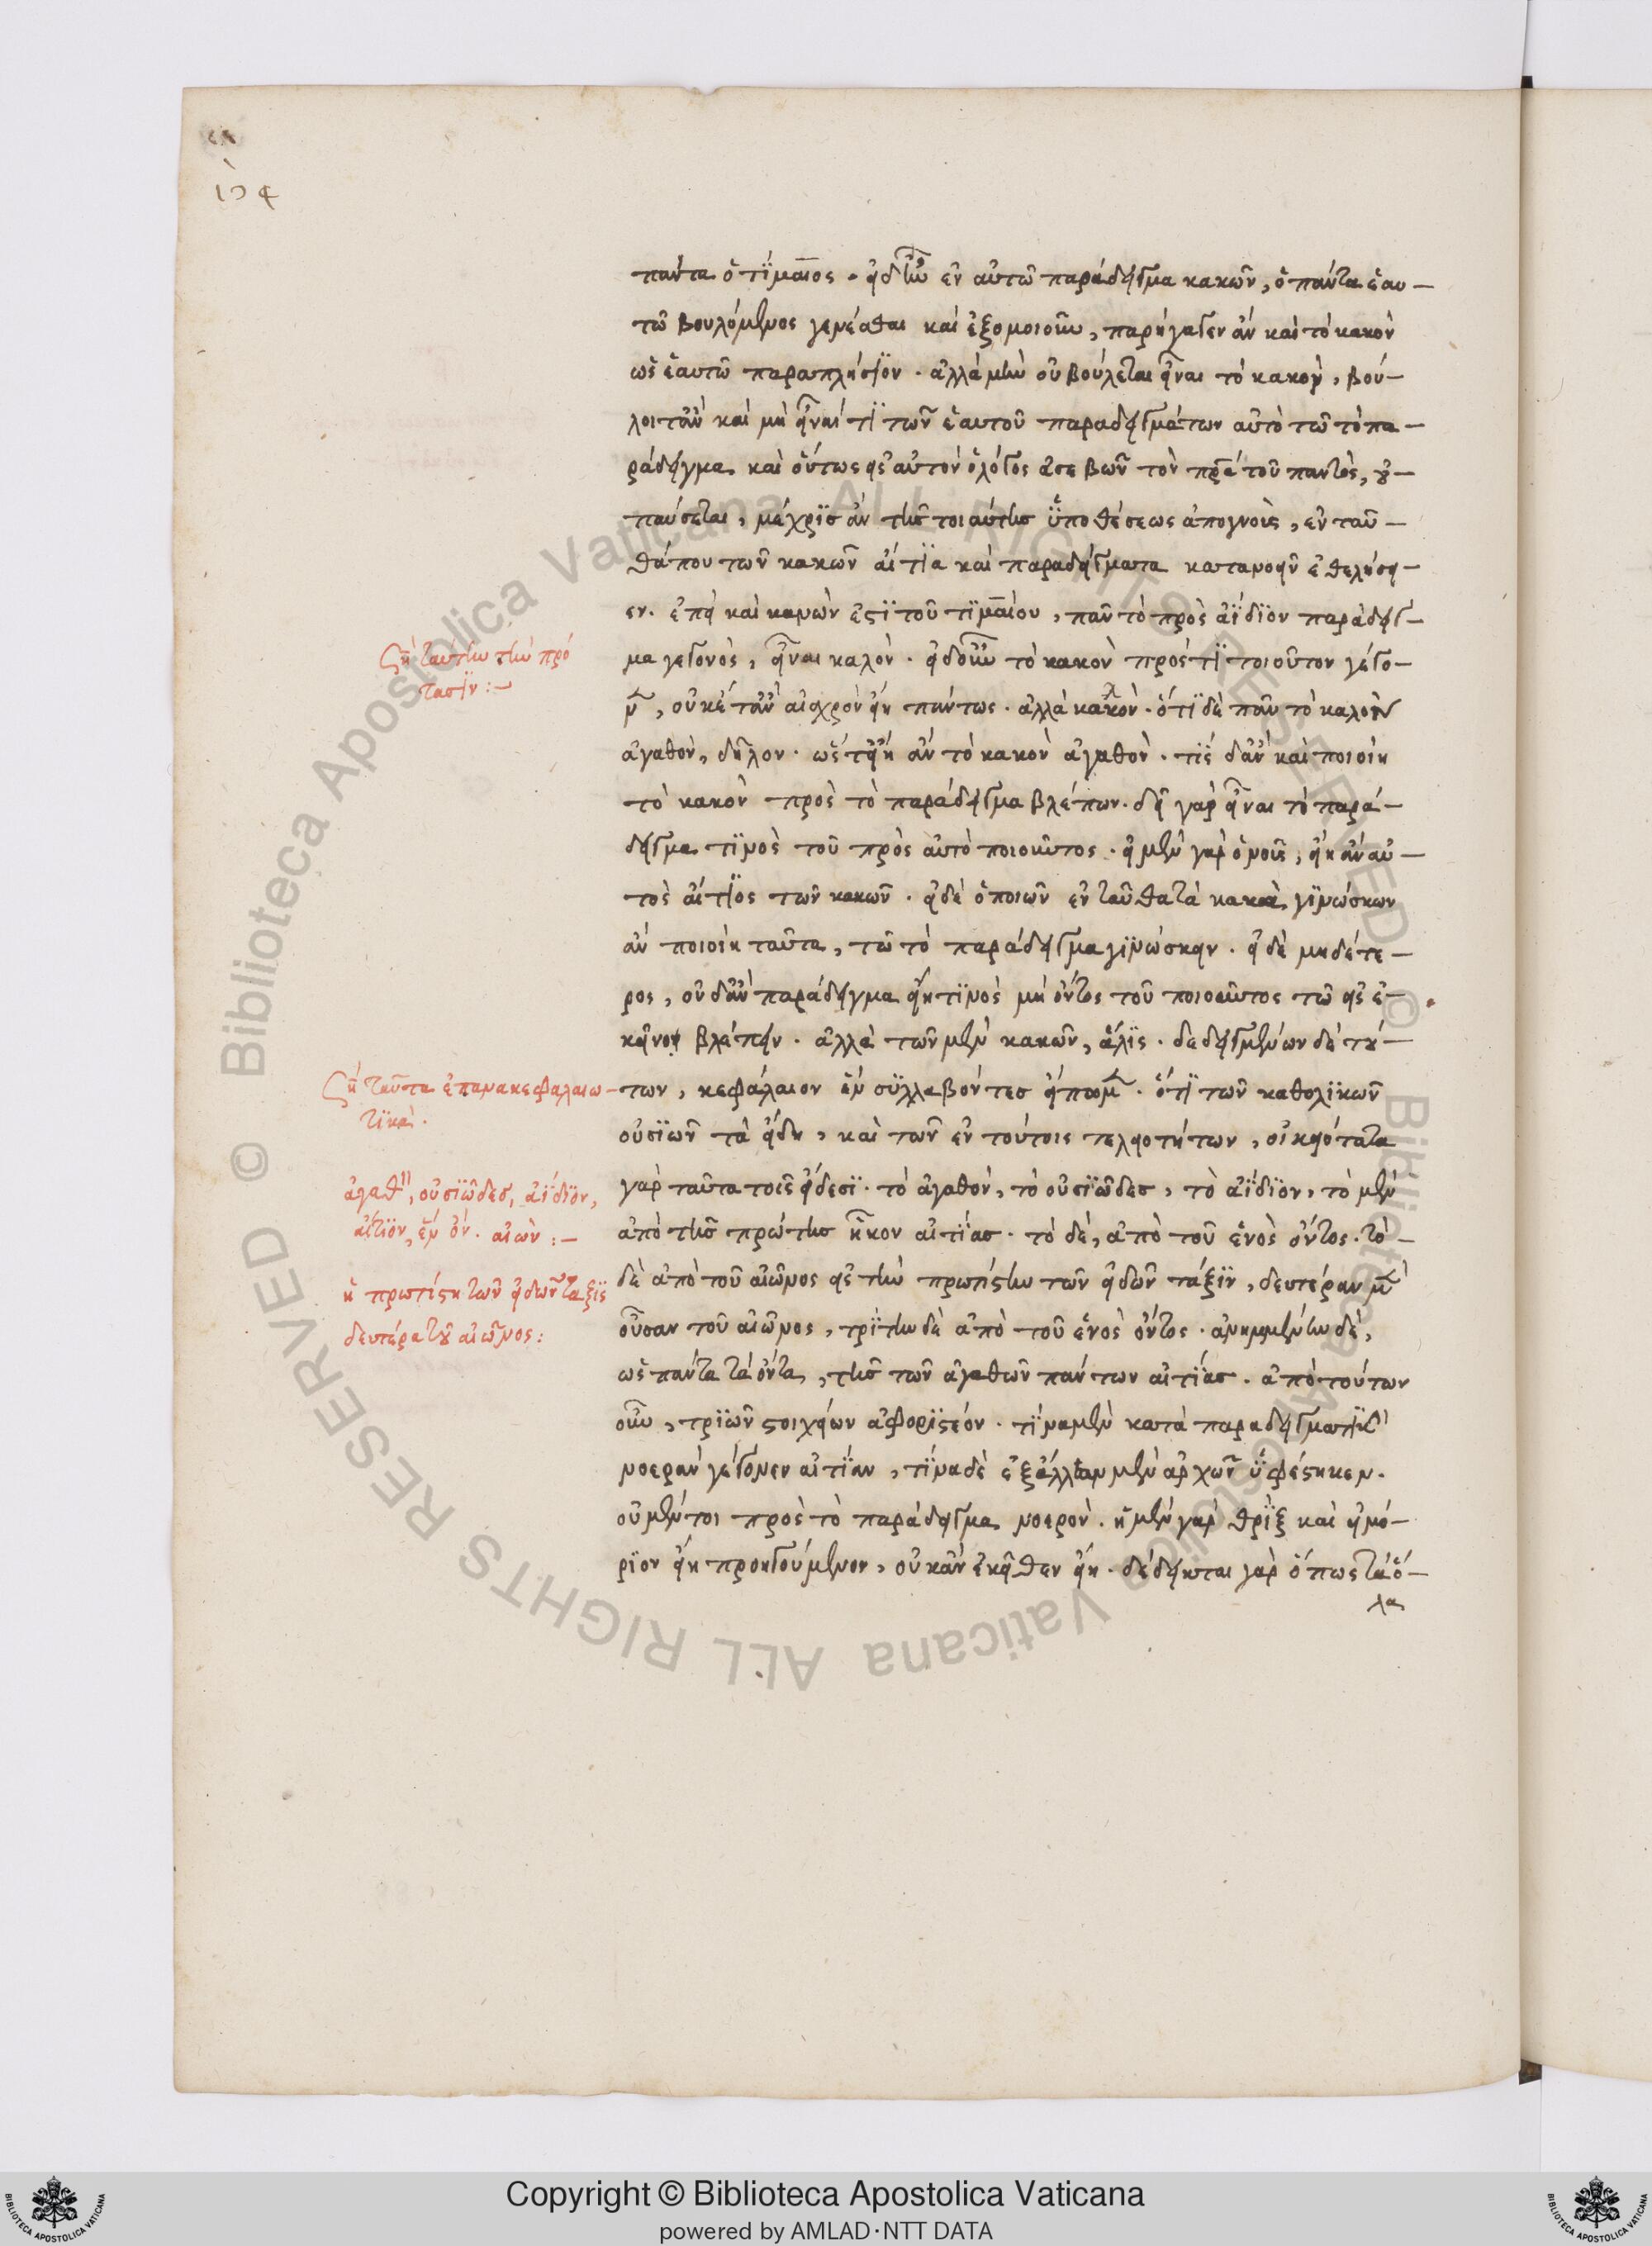 πάντα ὁ τίμαιος · εἰ δ' ἦν ἐν αὐτῶ παράδειγμα κακῶν, ὁ πάντα ἑαυ-
τῶ βουλόμενος γενέσθαι καὶ ἐξομοιοῦν, παρήγαγεν ἂν καὶ τὸ κακὸν
ὡς ἑαυτῶ παραπλήσιον · ἀλλὰ μὴν οὐ βούλεται εἶναι τὸ κακὸν, βού-
λοιτ' ἂν καὶ μὴ εἶναί τι τῶν ἑαυτοῦ παραδειγμάτων αὐτὸ τῶ τὸ πα-
ράδειγμα καὶ οὕτως εἰς αὐτὸν ὁ λόγος ἀσεβῶν τὸν πρα τοῦ παντὸς, οὐ
παύσεται, μέχρις ἂν τῆς τοιαύτης ὑποθέσεως ἀπογνοὺς, ἐνταῦ-
θά που τῶν κακῶν αἴτια καὶ παραδείγματα κατανοεῖν ἐθελήσει-
εν. ἐπεὶ καὶ κανών ἐστι τοῦ τιμαίου, πᾶν τὸ πρὸς ἀΐδιον παράδειγ-
μα γεγονὸς, εἶναι καλὸν · εἰ δ' οὖν τὸ κακὸν πρός τι τοιοῦτον γέγο-
ν, οὐκέτ' ἂν αἰσχρὸν εἴη πάντως · ἀλλὰ καλὸν · ὅτι δὲ πᾶν τὸ καλὸν
ἀγαθὸν, δῆλον · ὥστ' εἴη ἂν τὸ κακὸν ἀγαθὸν · τίς δ' ἂν καὶ ποιοίη
τὸ κακὸν πρὸς τὸ παράδειγμα βλέπων · δεῖ γὰρ εἶναι τὸ παρά-
δειγμα τινὸς τοῦ πρὸς αὐτὸ ποιοῦντος · εἰ μὲν γὰρ ὁ νοῦς, εἴη ἂν αὐ-
τὸς αἴτιος τῶν κακῶν · εἰ δὲ ὁ ποιῶν ἐνταῦθα τὰ κακὰ, γινώσκων
ἂν ποιοίη ταῦτα, τῶ τὸ παράδειγμα γινώσκειν · εἰ δὲ μηδέτε-
ρος, οὐδ' ἂν παράδειγμα εἴη τινὸς μὴ ὄντος τοῦ ποιοῦντος τῶ εἰς ἐ-
κεῖνον βλέπειν · ἀλλὰ τῶν μὲν κακῶν, ἅλις · δεδειγμένων δὲ τού-
των, κεφάλαιον ἓν συλλαβόντες εἴπωμεν · ὅτι τῶν καθολικῶν
οὐσιῶν τὰ εἴδη, καὶ τῶν ἐν τούτοις τελειοτήτων, οἰκειότατα
γὰρ ταῦτα τοῖς εἴδεσι · τὸ ἀγαθὸν, τὸ οὐσιῶδες, τὸ ἀΐδιον, τὸ μὲν
ἀπὸ τῆς πρώτης ἧκον αἰτίας · τὸ δὲ, ἀπὸ τοῦ ἑνὸς ὄντος · τὸ
δὲ ἀπὸ τοῦ αἰῶνος εἰς τὴν πρωτίστην τῶν εἰδῶν τάξιν, δευτέραν μὲν
οὖσαν τοῦ αἰῶνος, τρίτην δὲ ἀπὸ τοῦ ἑνὸς ὄντος · ἀνημμένην δὲ,
ὡς πάντα τὰ ὄντα, τῆς τῶν ἀγαθῶν πάντων αἰτίας · ἀπὸ τούτων
οὖν, τριῶν στοιχείων ἀφοριστέον · τίνα μὲν κατὰ παραδειγματικ
νοερὰν γέγονεν αἰτίαν, τίνα δὲ ἐξ ἄλλων μὲν ἀρχῶν ὑφέστηκεν ·
οὐ μέντοι πρὸς τὸ παράδειγμα νοερὸν · ἡ μὲν γὰρ θρὶξ καὶ εἰ μό-
ριον εἴη προηγούμενον, οὐκ ἂν ἐκεῖθεν εἴη · δέδεικται γὰρ ὅπως τὰ ὅ-
λα
ζή ταύτην τὴν πρό
τασιν :-
ζή ταῦτα ἐπανακεφαλαιω-
τικὰ ·
ἀγαθ, οὐσιῶδες, ἀΐδιον,
αἴτιον, ἓν ὄν · αἰὼν :-
ἡ πρωτίστη τῶν εἰδῶν τάξις
δευτέρα τοῦ αἰῶνος :
Copyright © Biblioteca Apostolica Vaticana
powered by AMLAD·NTT DATA
© Biblioteca Apostolica Vaticana ALL RIGHTS RESERVED © Biblioteca Apostolica Vaticana ALL RIGHTS RESERVED